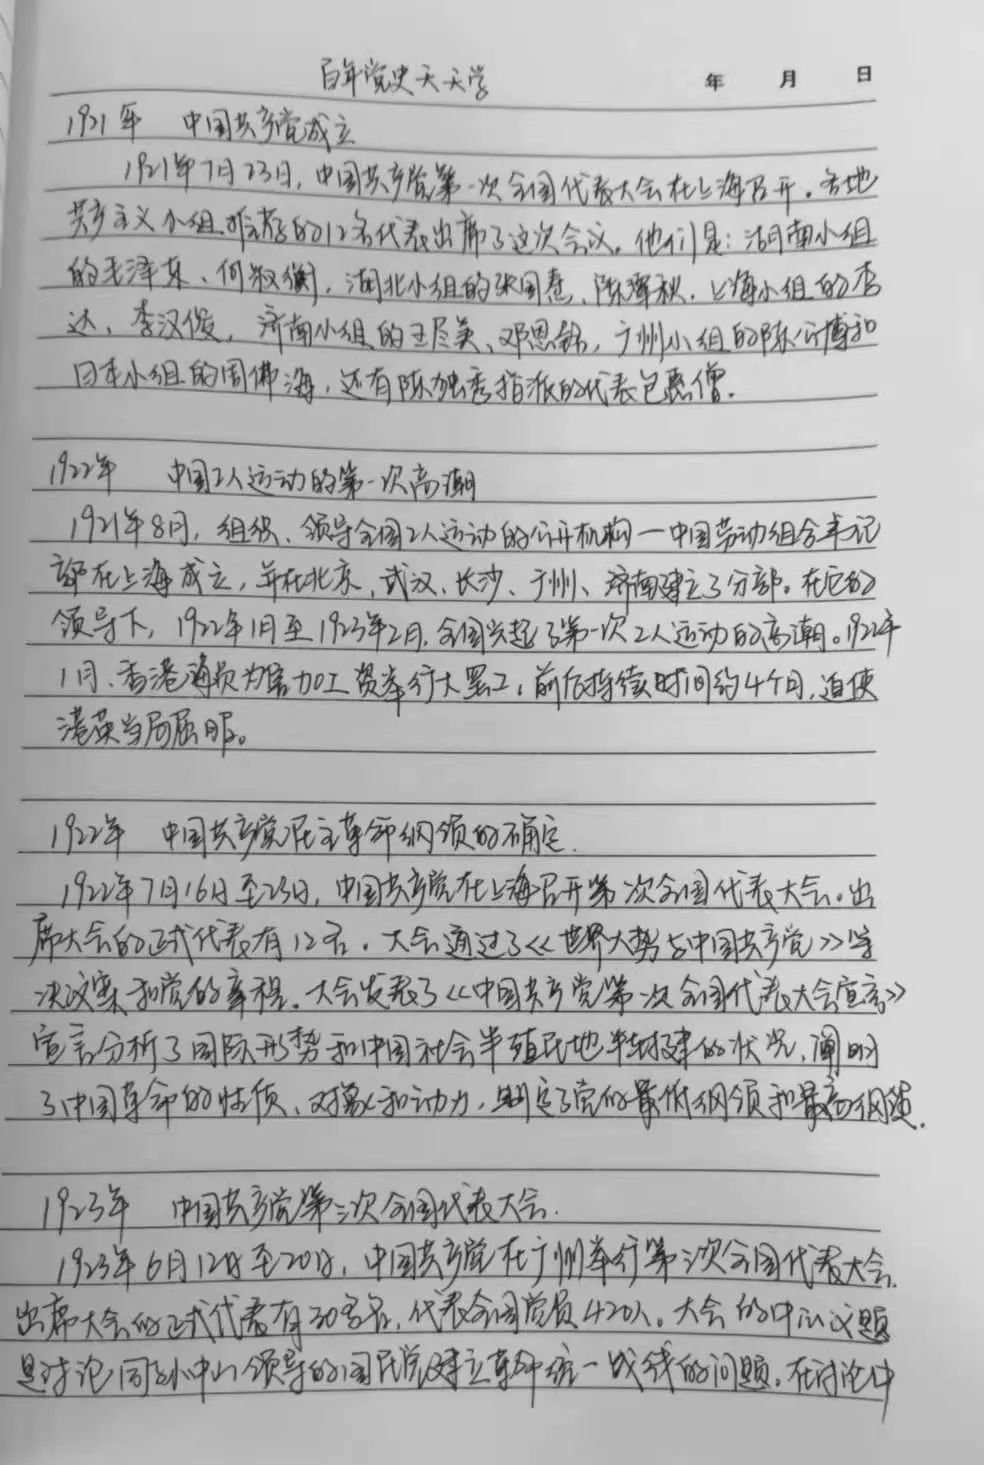 百年党史天天学 年 月 日
1921年 中国共产党成立
1921年7月23日,中国共产党第一次全国代表大会在上海召开。各地
共产主义小组推荐的12名代表出席了这次会议。他们是:湖南小组
的毛泽东、何叔衡,湖北小组的张国焘、陈潭秋,上海小组的李
达、李汉俊,济南小组的王尽美、邓恩铭,广州小组的陈公博和
日本小组的周佛海,还有陈独秀指派的代表包惠僧.
1922年 中国工人运动的第一次高潮
1921年8月,组织、领导全国工人运动的公开机构—中国劳动组合书记
部在上海成立,并在北京、武汉、长沙、广州、济南建立了分部。在它的
领导下,1922年1月至1923年2月,全国兴起了第一次工人运动的高潮。1922年
1月、香港海员为增加工资举行大罢工,前后持续时间约4个月,迫使
港英当局屈服。
1922年 中国共产党民主革命纲领的确定.
1922年7月16日至23日,中国共产党在上海召开第二次全国代表大会。出
席大会的正式代表有12名。大会通过了《世界大势与中国共产党》等
决议案和党的章程。大会发表了《中国共产党第二次全国代表大会宣言》
宣言分析了国际形势和中国社会半殖民地半封建的状况,阐明
了中国革命的性质、对象和动力,制定了党的最低纲领和最高纲领.
1923年 中国共产党第三次全国代表大会.
1923年6月12日至20日,中国共产党在广州举行第三次全国代表大会.
出席大会的正式代表有30多名,代表全国党员420人。大会的中心议题
是讨论同孙中山领导的国民党建立革命统一战线的问题。在讨论中